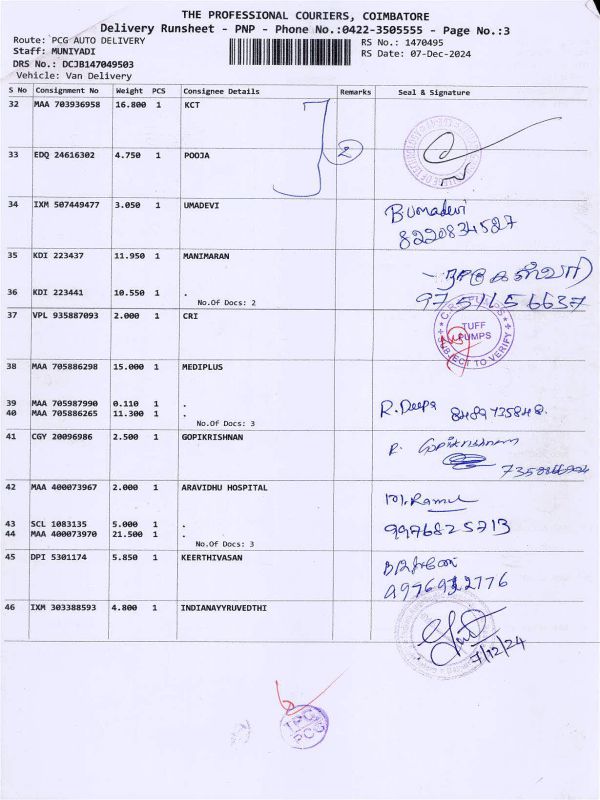 THE PROFESSIONAL COURIERS, COIMBATORE
Delivery Runsheet - PNP - Phone No.:0422-3505555 - Page No.:3
Route: PCG AUTO DELIVERY
Staff: MUNIYADI
RS No.: 1470495
DRS No.: DCJB147049503
RS Date: 07-Dec-2024
Vehicle: Van Delivery
S No Consignment No Weight PCS Consignee Details Remarks Seal & Signature
32 MAA 703936958 16.800 1 KCT
2
33 EDQ 24616302 4.750 1 POOJA
34 IXM 507449477 3.050 1 UMADEVI
B Umadevi
8220834527
35 KDI 223437 11.950 1 MANIMARAN
36 KDI 223441 10.550 1 .
9751156637
No.Of Docs: 2
37 VPL 935887093 2.000 1 CRI
TUFF
PUMPS
SUBJECT TO VERIFY
38 MAA 705886298 15.000 1 MEDIPLUS
39 MAA 705987990 0.110 1 .
40 MAA 705886265 11.300 1 .
R. Deepa 8489735848.
No.Of Docs: 3
41 CGY 20096986 2.500 1 GOPIKRISHNAN
R. Gopikrishnan
42 MAA 400073967 2.000 1 ARAVIDHU HOSPITAL
M. Ramu
43 SCL 1083135 5.000 1 .
9976825713
44 MAA 400073970 21.500 1 .
No.Of Docs: 3
45 DPI 5301174 5.850 1 KEERTHIVASAN
46 IXM 303388593 4.800 1 INDIANAYYRUVEDTHI
7/12/24